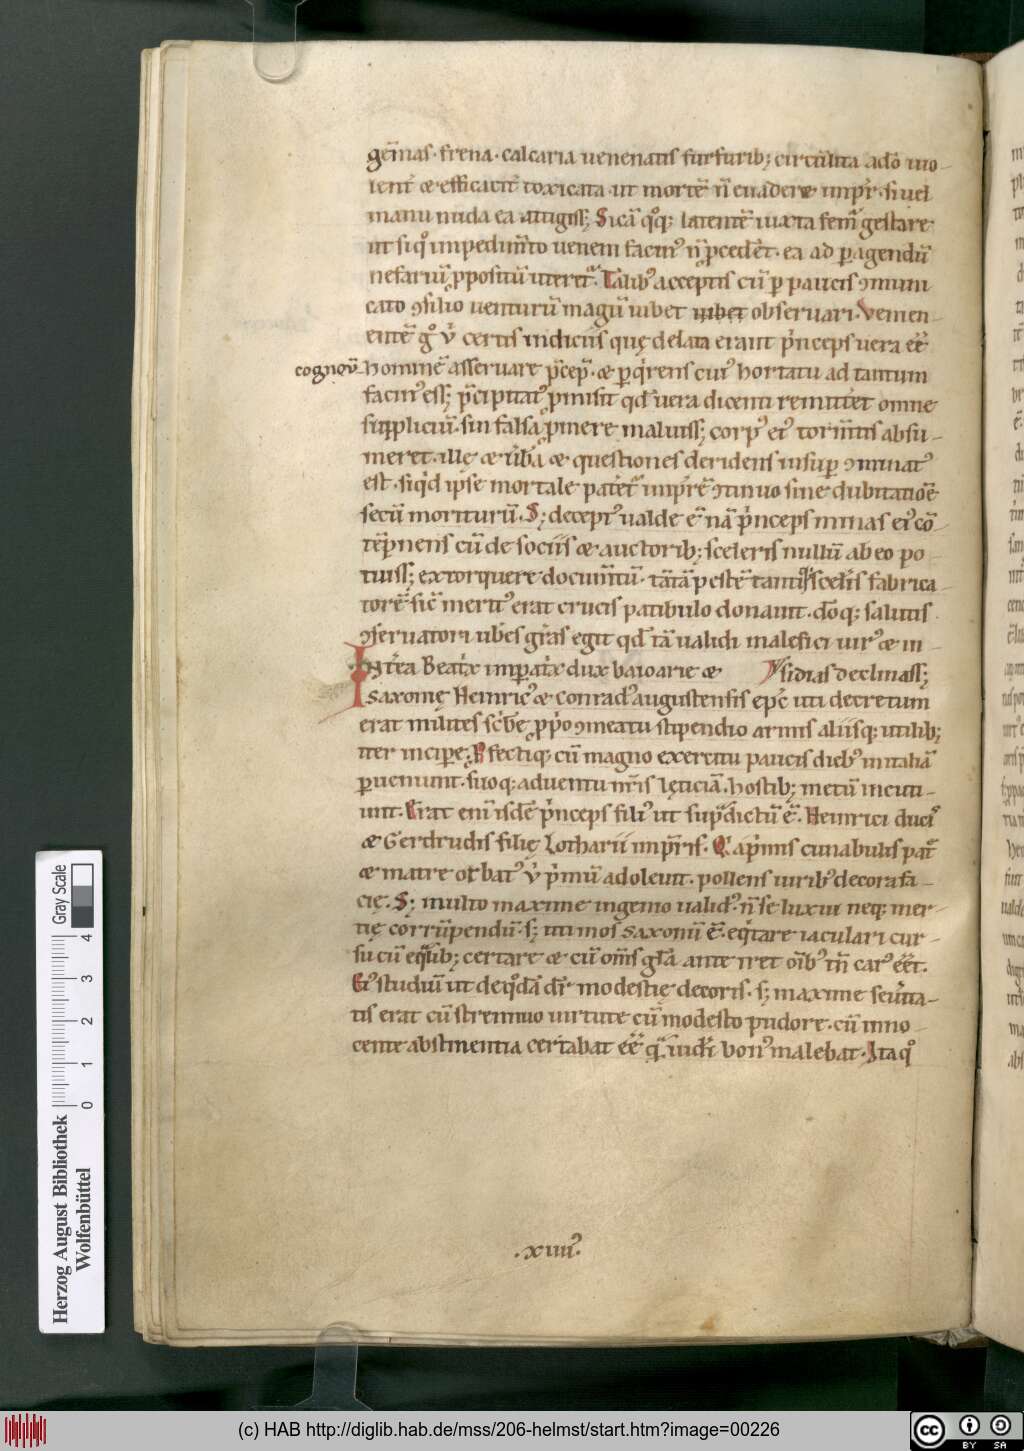 gēmas · frena · calcaria venenatis furfurib; circūlita adō vio-
lent᷑ & efficacit᷑ toxicata · ut mortē n̄ evadere imp̄r · si vel
manu nuda ea attigiss; Sicā q°q; latentē iuxta femꝰ gestare
ut si q°d impedim̄to veneni facinꝰ n̄ p̄cederet · ea ad peragendū
nefariū propositū uteret᷑. Talibꝰ acceptis cū p paucis ꝯmuni
cato ꝯsilio venturū magū iubet iubet observari. Venien-
entē g° v͛ certis indiciis quę delata erant p͛nceps vera eē
cognov̄
hominē asservare p̄cep · & perq͛rens cuiꝰ hortatu ad tantum
facinꝰ ess; p̄cipitatꝰ p̄misit qd̄ vera dicenti remitteret omne
suppliciū · sin falsa promere maluiss; corpꝰ eiꝰ torm̄tis absu-
meret · ille & v͛ba & questiones deridens insup ꝯminatꝰ
est · si q͛d ipse mortale pateret᷑ imp͛rē ꝯtinuo sine dubitatiōe
secū moriturū. S; deceptꝰ valde ē nā p͛nceps minas eiꝰ cō-
tēpnens cū de sociis & auctorib; sceleris nullū ab eo po-
tuiss; extorquere docum̄tū · tātā pestē tantiq; sceler͛s fabrica-
torē sic̄ meritꝰ erat crucis patibulo donavit · dōq; salutis
ꝯservatori ub̄es gr̄as egit qd̄ tā validi malefici vir° & in-
Int͛ea Beat͛x imp̄at͛x dux baioarie & sidias declinass;
saxonię Heinricꝰ & conradꝰ augustensis epc̄ uti decretum
erat milites sc͛be ppo ꝯmeatu stipendio armis aliisq; utilib;
iter incipe. Pfectiq; cū magno exercitu paucis diebꝰ in italiā
perveniunt · suoq; adventu nr̄is lęticiā · hostib; metū incuti-
unt. Erat enī isdē p͛nceps filiꝰ ut sup͛dictū ē. Heinrici ducꝰ
& Gerdrudis filię Lotharii imp̄ris. Q͛ a p͛mis cunabulis pat͛
& matre orbatꝰ v͛ p͛mū adolevit · pollens viribꝰ decora fa-
cię. S; multo maxime ingenio validꝰ · n̄ se luxui neq; iner-
tię corrūpendū · s; uti mos saxonū ē · eq͛tare iaculari cur-
su cū eq͛lib; certare & cū om̄s gl͛a anteiret oīb° tn̄ carꝰ eēt.
Eiꝰ studiū ut de q°dā dr̄ modestię decoris · s; maxime sev͛ita-
tis erat cū strennuo virtute cū modesto pudore · cū inno-
cente abstinentia certabat eē q͛ vider͛ bonꝰ malebat · Ita q°
· xiiiiꝰ
Herzog August Bibliothek
Wolfenbüttel
0 1 2 3 4
Gray Scale
(c) HAB http://diglib.hab.de/mss/206-helmst/start.htm?image=00226
cc BY SA